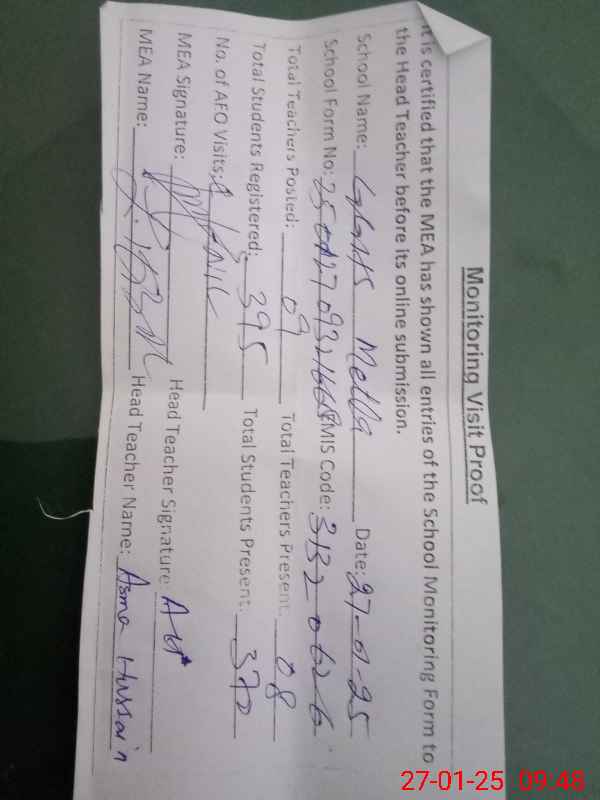 Monitoring Visit Proof
It is certified that the MEA has shown all entries of the School Monitoring Form to
the Head Teacher before its online submission.
School Name: GGHS Metla Date: 27-01-25
School Form No: EMIS Code: 31320626
Total Teachers Posted: 09 Total Teachers Present: 08
Total Students Registered: 395 Total Students Present: 372
No. of AFO Visits:
MEA Signature: Head Teacher Signature:
MEA Name: Head Teacher Name: Asma Hussain
27-01-25 09:48